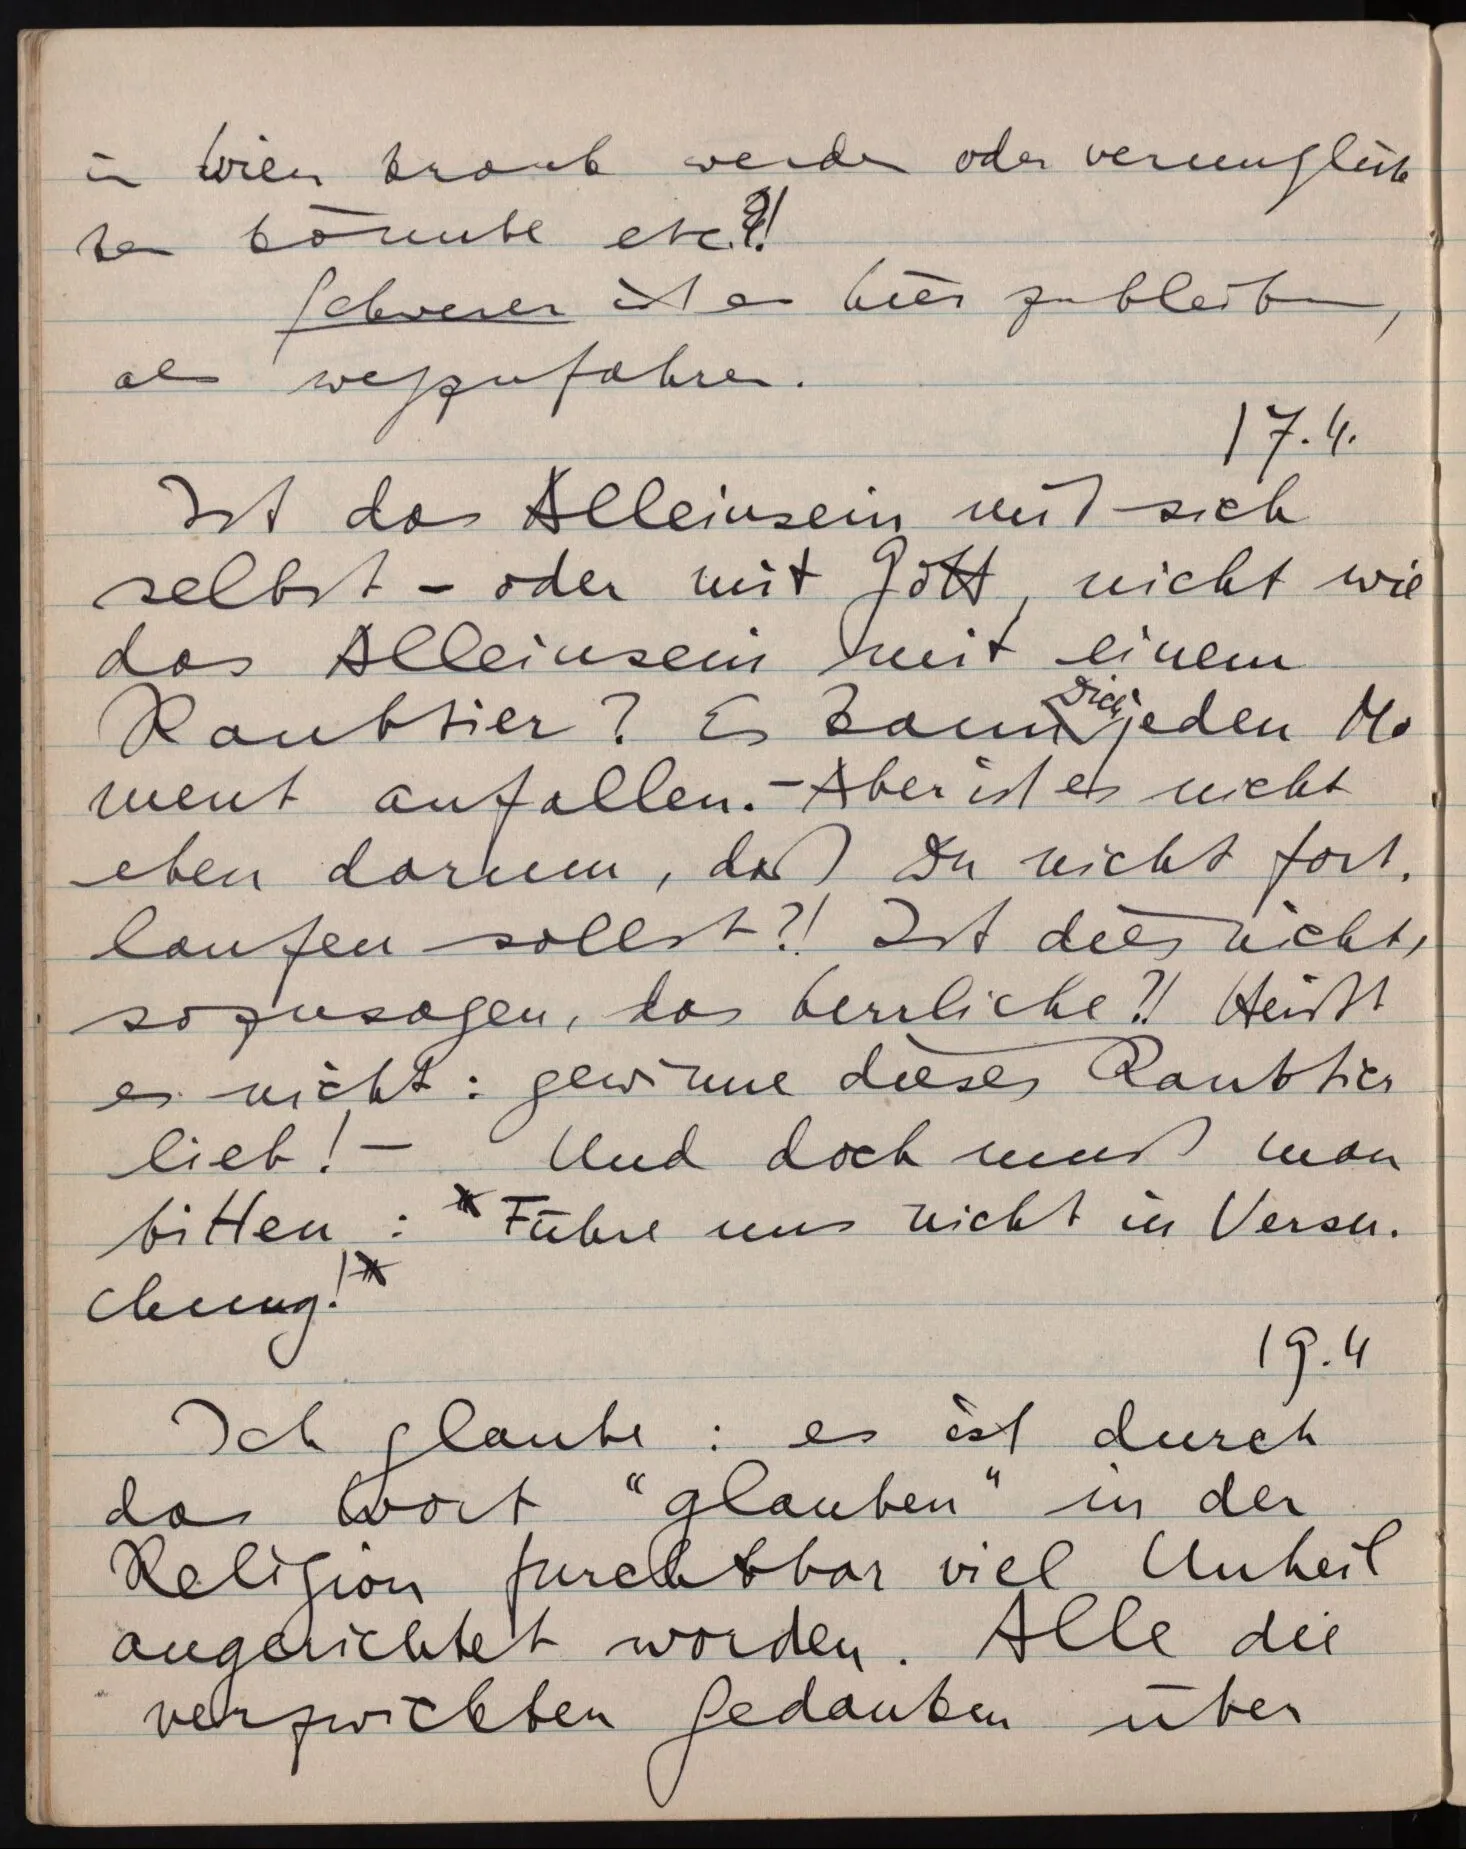 in Wien krank werden oder verunglück
ten könnte etc.?!
Schwerer ist es hier zu bleiben,
als wegzufahren.
17.4.
Ist das Alleinsein mit sich
selbst – oder mit Gott, nicht wie
das Alleinsein mit einem
Raubtier? Es kann Dich jeden Mo
ment anfallen. – Aber ist es nicht
eben darum, daß Du nicht fort-
laufen sollst?! Ist dies nicht,
sozusagen, das herrliche?! Heißt
es nicht: gewinne dieses Raubtier
lieb! – Und doch muß man
bitten: Führe uns nicht in Versu-
chung!
19.4
Ich glaube: es ist durch
das Wort “glauben” in der
Religion furchtbar viel Unheil
angerichtet worden. Alle die
verzwickten Gedanken über